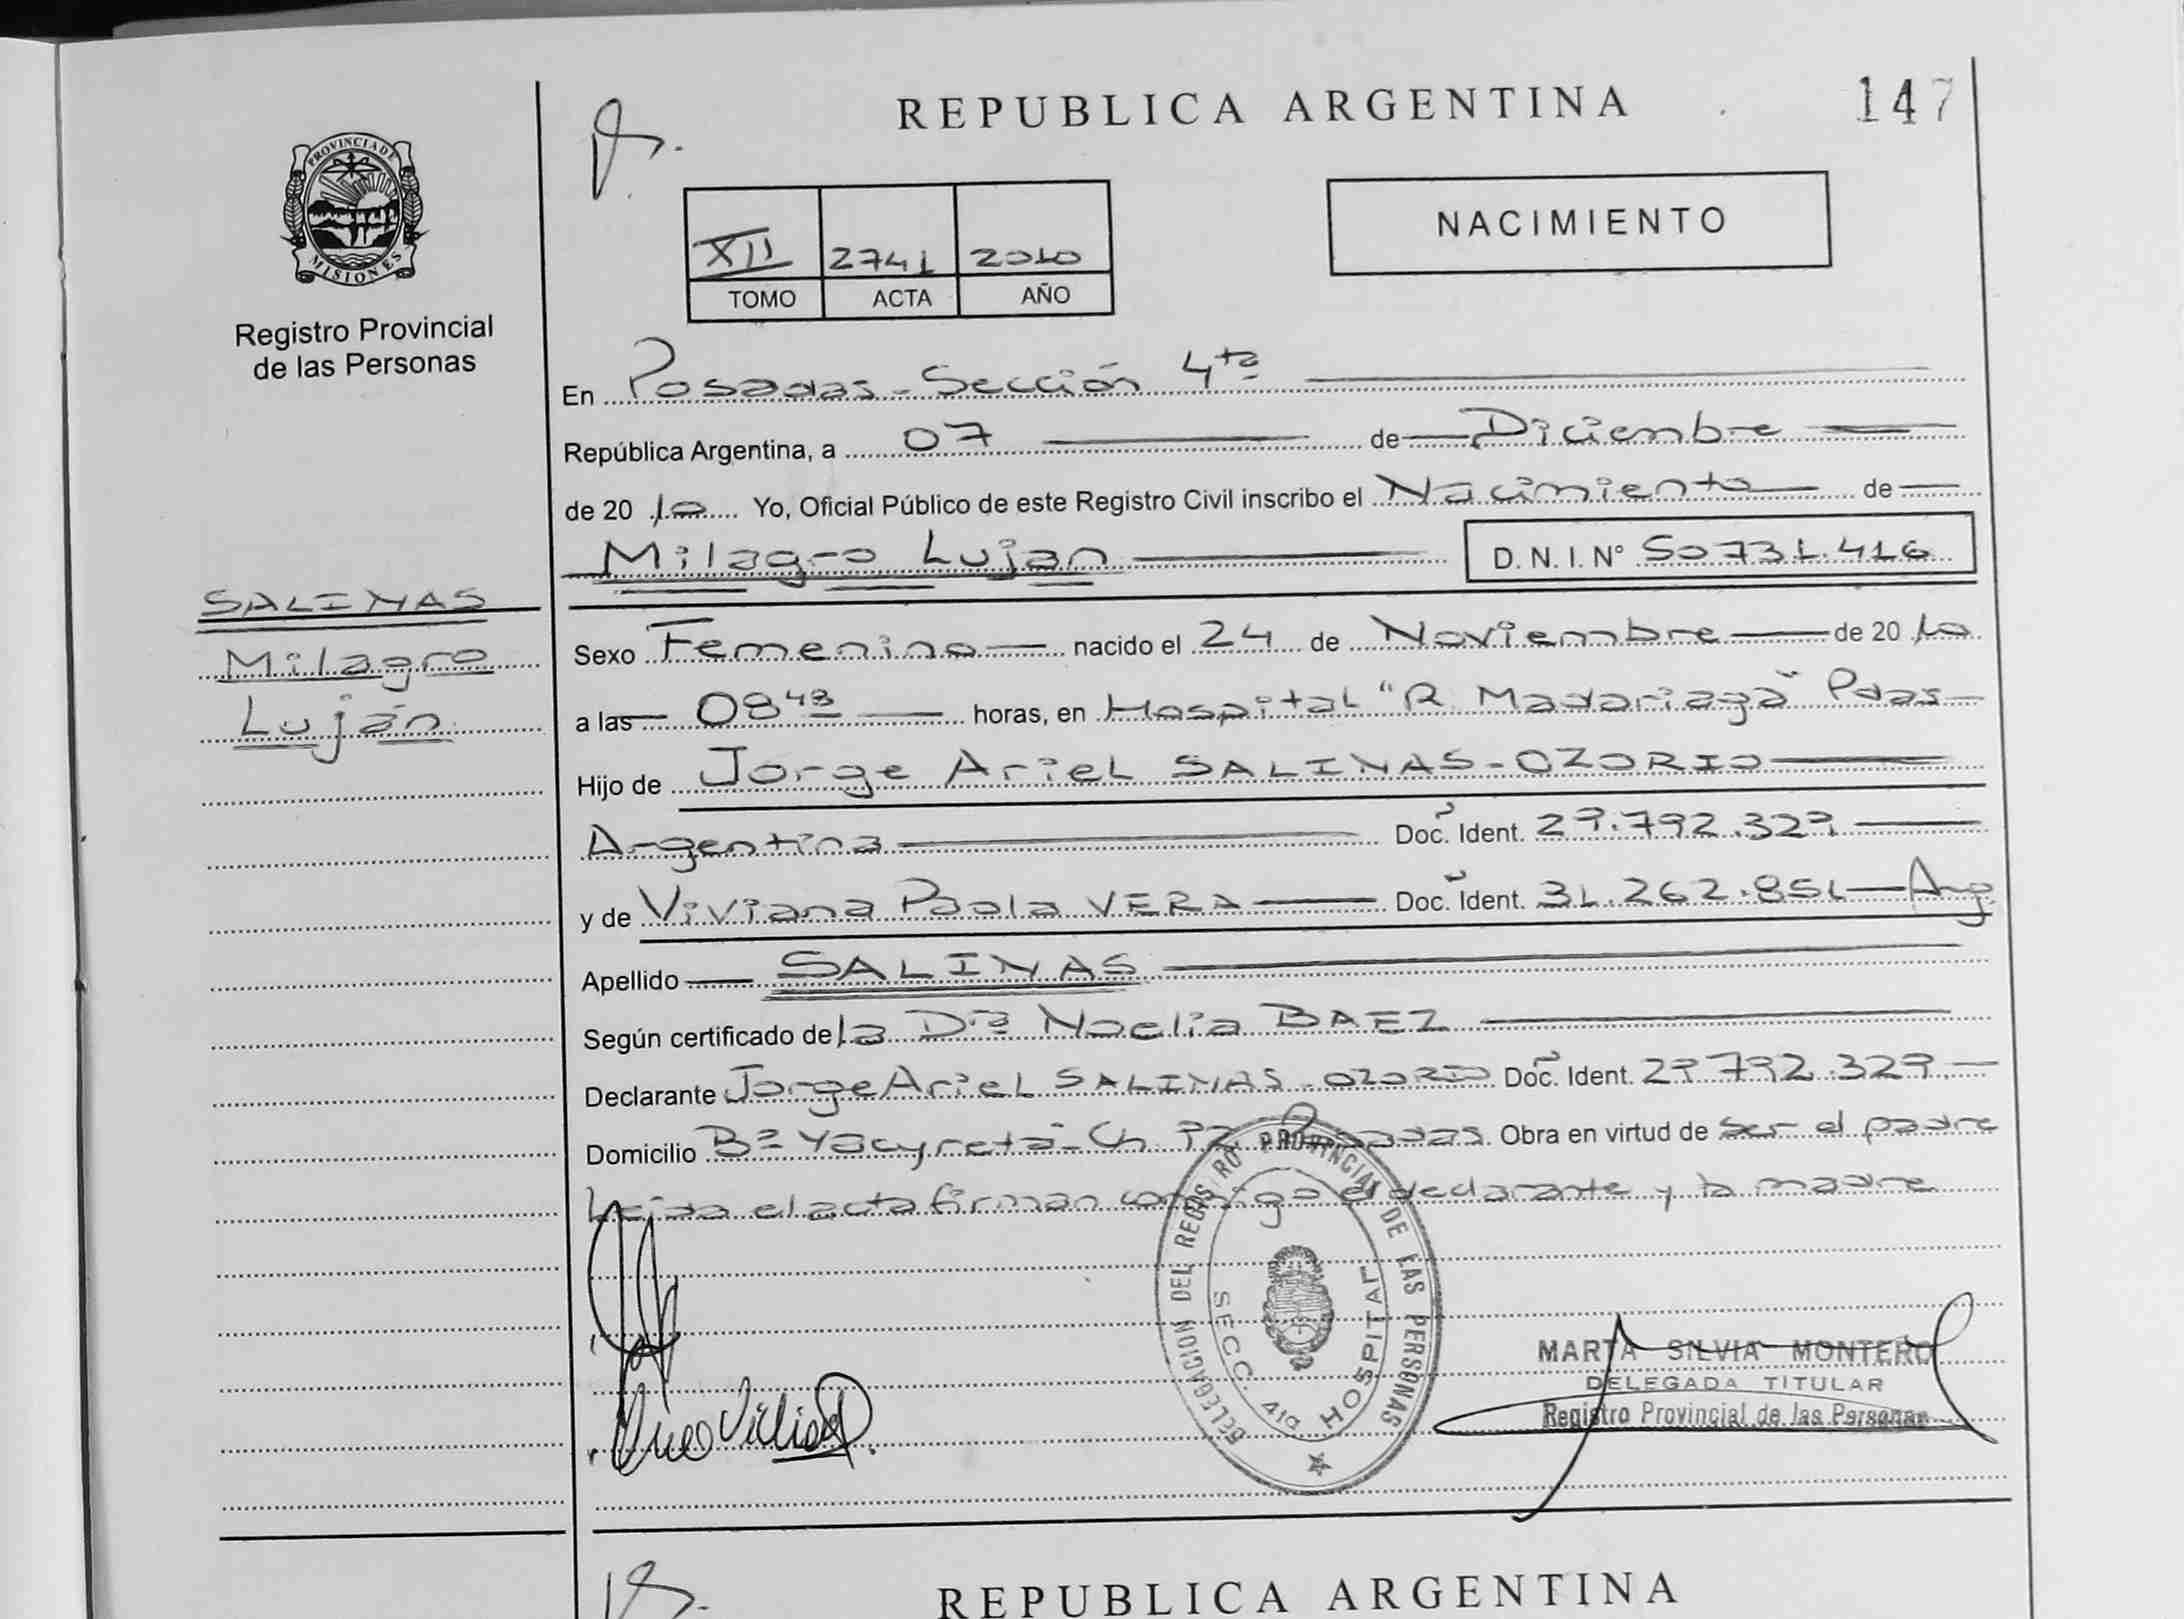 REPUBLICA ARGENTINA
147
PROVINCIA DE
MISIONES
Registro Provincial
de las Personas
NACIMIENTO
XII 2741 2010
TOMO ACTA AÑO
En Posadas - Sección 4ta
República Argentina, a 07 de Diciembre
de 20 10 Yo, Oficial Público de este Registro Civil inscribo el Nacimiento de
Milagro Lujan D. N. I. N° 50731.416
SALINAS
Milagro
Luján
Sexo Femenino nacido el 24 de Noviembre de 20 10
a las 08 48 horas, en Hospital "R. Madariaga" Pdas
Hijo de Jorge Ariel SALINAS-OZORIO
Argentina Doc. Ident. 29.792.329
y de Viviana Paola VERA Doc. Ident. 31.262.851 Arg
Apellido SALINAS
Según certificado de la Dra Noelia BAEZ
Declarante Jorge Ariel SALINAS-OZORIO Doc. Ident. 29792.329.
Domicilio Bº Yacyretá - Ch 92 Posadas Obra en virtud de ser el padre
Leida el acta firman conmigo el declarante y la madre
DELEGACION DEL REGISTRO PROVINCIAL DE LAS PERSONAS
SECC. 4ta HOSPITAL
MARTA SILVIA MONTERO
DELEGADA TITULAR
Registro Provincial de las Personas
REPUBLICA ARGENTINA